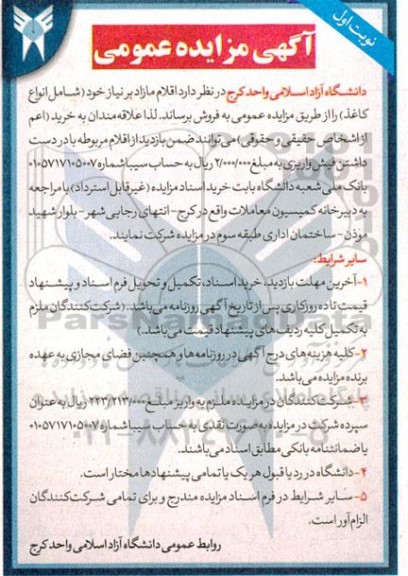 نوبت اول
آگهی مزایده عمومی
دانشگاه آزاد اسلامی واحد کرج در نظر دارد اقلام مازاد بر نیاز خود (شامل انواع
کاغذ) را از طریق مزایده عمومی به فروش برساند. لذا علاقه‌مندان به خرید (اعم
از اشخاص حقیقی و حقوقی) می‌توانند ضمن بازدید از اقلام مربوطه با در دست
داشتن فیش واریزی به مبلغ ۲/۰۰۰/۰۰۰ ریال به حساب سیبا شماره ۰۱۰۵۷۱۷۱۰۵۰۰۷
بانک ملی شعبه دانشگاه بابت خرید اسناد مزایده (غیرقابل استرداد) با مراجعه
به دبیرخانه کمیسیون معاملات واقع در کرج - انتهای رجایی شهر - بلوار شهید
موذن - ساختمان اداری طبقه سوم در مزایده شرکت نمایند.
سایر شرایط:
۱- آخرین مهلت بازدید، خرید اسناد، تکمیل و تحویل فرم اسناد و پیشنهاد
قیمت تا ده روز کاری پس از تاریخ آگهی روزنامه می‌باشد. (شرکت‌کنندگان ملزم
به تکمیل کلیه ردیف‌های پیشنهاد قیمت می‌باشد.)
۲- کلیه هزینه‌های درج آگهی در روزنامه‌ها و همچنین فضای مجازی به عهده
برنده مزایده می‌باشد.
۳- شرکت کنندگان در مزایده ملزم به واریز مبلغ ۲۲۳/۲۱۳/۰۰۰ ریال به عنوان
سپرده شرکت در مزایده به صورت نقدی به حساب سیبا شماره ۰۱۰۵۷۱۷۱۰۵۰۰۷
یا ضمانتنامه بانکی مطابق اسناد می‌باشند.
۴- دانشگاه در رد یا قبول هر یک یا تمامی پیشنهادها مختار است.
۵- سایر شرایط در فرم اسناد مزایده مندرج و برای تمامی شرکت‌کنندگان
الزام‌آور است.
روابط عمومی دانشگاه آزاد اسلامی واحد کرج